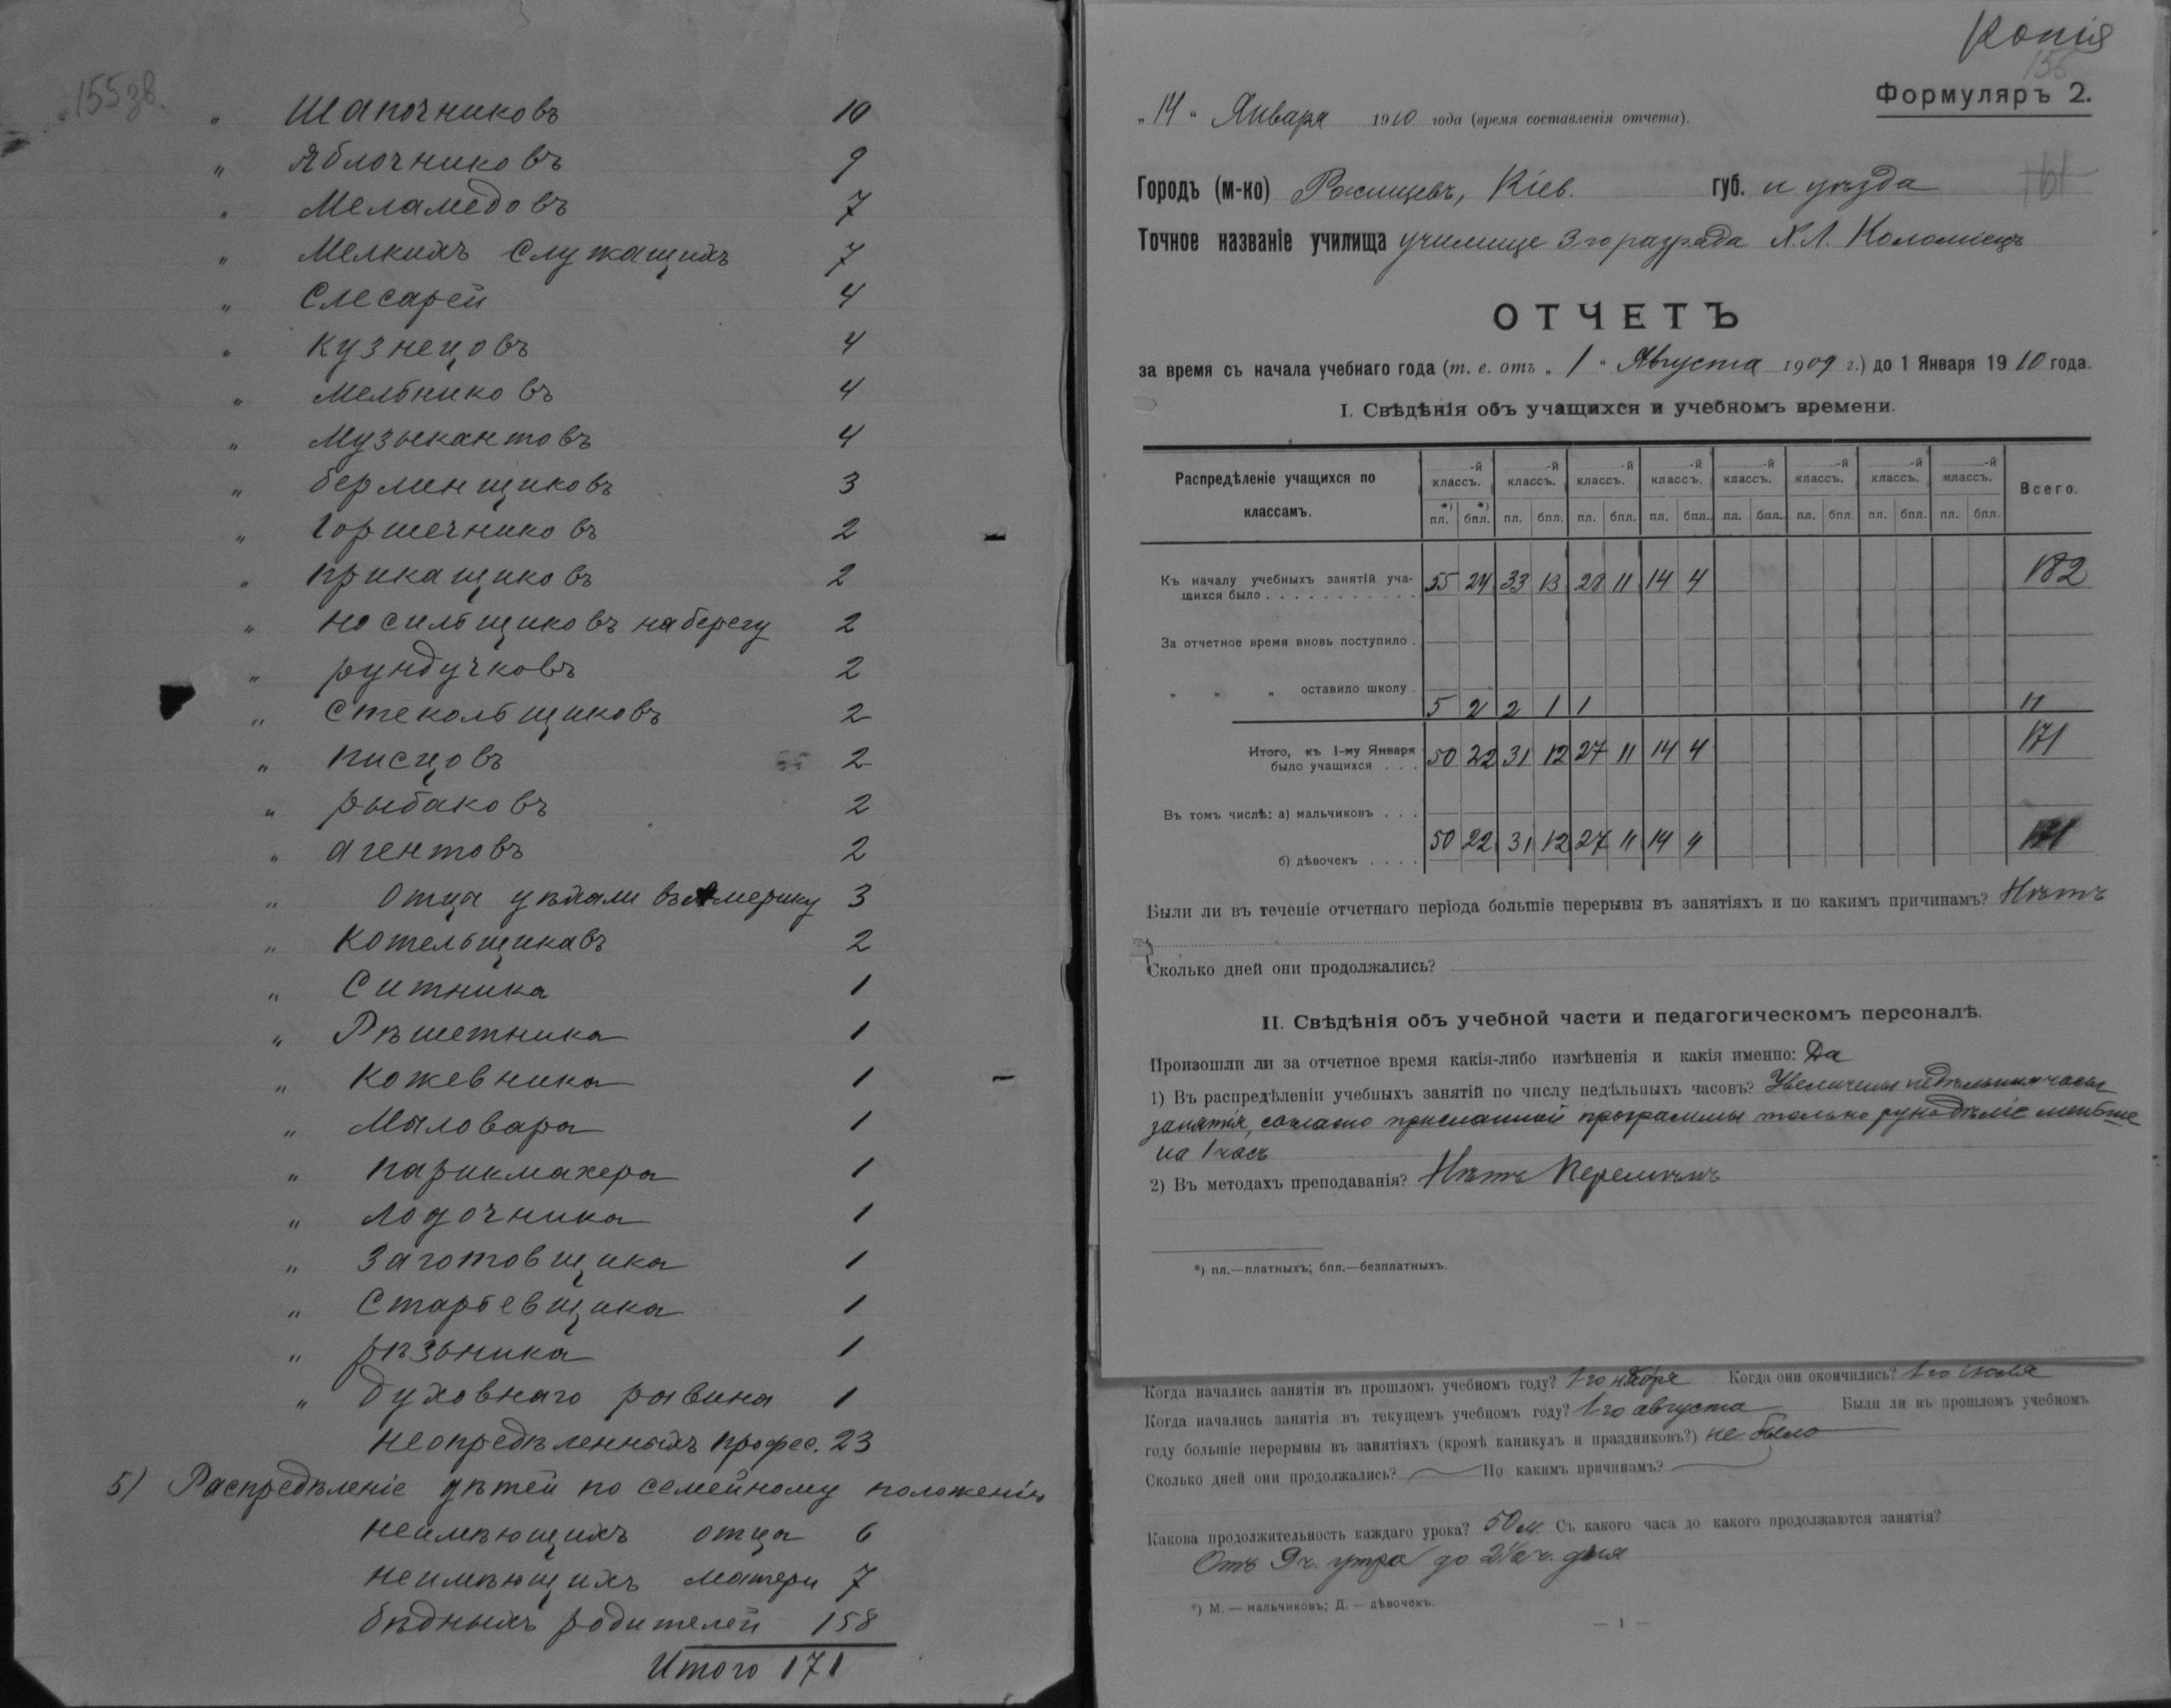 155 зв.
" Шапочниковъ 10
" Яблочниковъ 9
" Меламедовъ 7
" Мелкихъ служащихъ 7
" Слесарей 4
" Кузнецовъ 4
" Мельниковъ 4
" Музыкантовъ 4
" берлинщиковъ 3
" Горшечниковъ 2
" прикащиковъ 2
" носильщиковъ на берегу 2
" рундучковъ 2
" Стекольщиковъ 2
" писцовъ 2
" рыбаковъ 2
" агентовъ 2
" Отца уѣхали въ Америку 3
" Котельщикавъ 2
" Ситника 1
" Рѣшетника 1
" Кожевника 1
" Мыловара 1
" парикмахера 1
" лодочника 1
" Заготовщика 1
" Старьевщика 1
" рѣзьника 1
" Духовнаго равина 1
неопредѣленныхъ профес. 23
5) Распредѣленіе дѣтей по семейному положенію
неимѣющихъ отца 6
неимѣющихъ матери 7
бѣдныхъ родителей 158
Итого 171
Копія
156
Формуляръ 2.
„14“ Января 1910 года (время составленія отчета).
Городъ (м-ко) Ржищевъ, Кіев. губ. и уѣзда
Точное названіе училища училище 3го разряда Х. Л. Коломіецъ
ОТЧЕТЪ
за время съ начала учебнаго года (т. е. отъ „1“ Августа 1909 г.) до 1 Января 1910 года.
I. Свѣдѣнія объ учащихся и учебномъ времени.
Распредѣленіе учащихся по классамъ. -й классъ. -й классъ. -й классъ. -й классъ. -й классъ. -й классъ. -й классъ. -й классъ. Всего.
*) пл. *) бпл. пл. бпл. пл. бпл. пл. бпл. пл. бпл. пл. бпл. пл. бпл. пл. бпл.
Къ началу учебныхъ занятій уча-
щихся было . . . 55 24 33 13 28 11 14 4 182
За отчетное время вновь поступило .
" " " оставило школу . 5 2 2 1 1 11
Итого, къ 1-му Января
было учащихся . . . 50 22 31 12 27 11 14 4 171
Въ томъ числѣ: а) мальчиковъ . . .
б) дѣвочекъ . . . . 50 22 31 12 27 11 14 4 171
Были ли въ теченіе отчетнаго періода большіе перерывы въ занятіяхъ и по какимъ причинамъ? Нѣтъ
Сколько дней они продолжались?
II. Свѣдѣнія объ учебной части и педагогическомъ персоналѣ.
Произошли ли за отчетное время какія-либо измѣненія и какія именно: Да
1) Въ распредѣленіи учебныхъ занятій по числу недѣльныхъ часовъ? Увеличены недѣльныя часы
занятія, согласно присланной программы только рукодѣліе меньше
на 1 часъ
2) Въ методахъ преподаванія? Нѣтъ Перемѣнъ
*) пл.—платныхъ; бпл.—безплатныхъ.
Когда начались занятія въ прошломъ учебномъ году? 1-го Когда они окончились? 1-го
Когда начались занятія въ текущемъ учебномъ году? 1-го августа Были ли въ прошломъ учебномъ
году большіе перерывы въ занятіяхъ (кромѣ каникулъ и праздниковъ?) не было
Сколько дней они продолжались? По какимъ причинамъ?
Какова продолжительность каждаго урока? 50 м. Съ какого часа до какого продолжаются занятія?
Отъ 9 ч. утра до 2½ ч. дня
*) М. — мальчиковъ; Д. — дѣвочекъ.
— 1 —